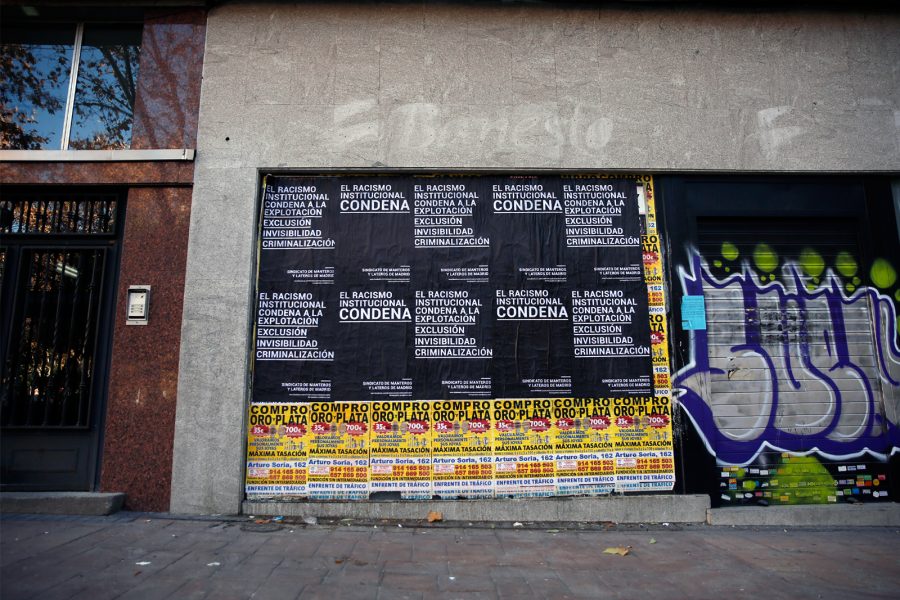 Banesto
EL RACISMO
INSTITUCIONAL
CONDENA A LA
EXPLOTACIÓN
EXCLUSIÓN
INVISIBILIDAD
CRIMINALIZACIÓN
SINDICATO DE MANTEROS
Y LATEROS DE MADRID
EL RACISMO
INSTITUCIONAL
CONDENA
SINDICATO DE MANTEROS
Y LATEROS DE MADRID
EL RACISMO
INSTITUCIONAL
CONDENA A LA
EXPLOTACIÓN
EXCLUSIÓN
INVISIBILIDAD
CRIMINALIZACIÓN
SINDICATO DE MANTEROS
Y LATEROS DE MADRID
EL RACISMO
INSTITUCIONAL
CONDENA
SINDICATO DE MANTEROS
Y LATEROS DE MADRID
EL RACISMO
INSTITUCIONAL
CONDENA A LA
EXPLOTACIÓN
EXCLUSIÓN
INVISIBILIDAD
CRIMINALIZACIÓN
SINDICATO DE MANTEROS
Y LATEROS DE MADRID
EL RACISMO
INSTITUCIONAL
CONDENA A LA
EXPLOTACIÓN
EXCLUSIÓN
INVISIBILIDAD
CRIMINALIZACIÓN
SINDICATO DE MANTEROS
Y LATEROS DE MADRID
EL RACISMO
INSTITUCIONAL
CONDENA
SINDICATO DE MANTEROS
Y LATEROS DE MADRID
EL RACISMO
INSTITUCIONAL
CONDENA A LA
EXPLOTACIÓN
EXCLUSIÓN
INVISIBILIDAD
CRIMINALIZACIÓN
SINDICATO DE MANTEROS
Y LATEROS DE MADRID
EL RACISMO
INSTITUCIONAL
CONDENA
SINDICATO DE MANTEROS
Y LATEROS DE MADRID
EL RACISMO
INSTITUCIONAL
CONDENA A LA
EXPLOTACIÓN
EXCLUSIÓN
INVISIBILIDAD
CRIMINALIZACIÓN
SINDICATO DE MANTEROS
Y LATEROS DE MADRID
COMPRO COMPRO COMPRO COMPRO COMPRO COMPRO COMPRO
ORO-PLATA ORO-PLATA ORO-PLATA ORO-PLATA ORO-PLATA ORO-PLATA ORO-PLATA
35€ 700€ 35€ 700€ 35€ 700€ 35€ 700€ 35€ 700€ 35€ 700€ 35€ 700€
VALORAMOS
PERSONALMENTE
SUS JOYAS
MÁXIMA TASACIÓN MÁXIMA TASACIÓN MÁXIMA TASACIÓN MÁXIMA TASACIÓN MÁXIMA TASACIÓN MÁXIMA TASACIÓN MÁXIMA TASACIÓN
Arturo Soria, 162 Arturo Soria, 162 Arturo Soria, 162 Arturo Soria, 162 Arturo Soria, 162 Arturo Soria, 162 Arturo Soria, 162
914 165 503 914 165 503 914 165 503 914 165 503 914 165 503 914 165 503 914 165 503
657 669 590 657 669 590 657 669 590 657 669 590 657 669 590 657 669 590 657 669 590
FUNDICIÓN SIN INTERMEDIARIOS
ENFRENTE DE TRÁFICO ENFRENTE DE TRÁFICO ENFRENTE DE TRÁFICO ENFRENTE DE TRÁFICO ENFRENTE DE TRÁFICO ENFRENTE DE TRÁFICO ENFRENTE DE TRÁFICO